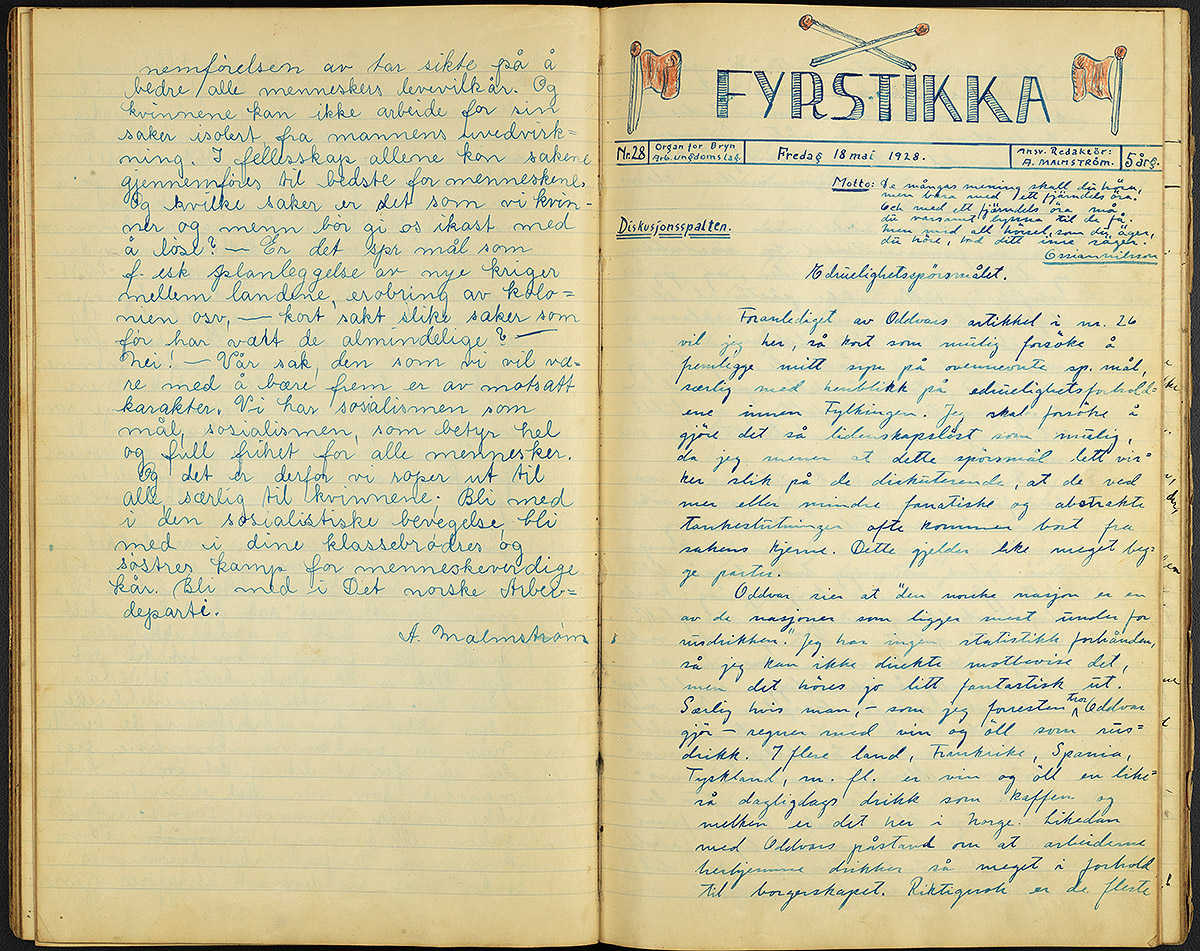 nemförelsen av tar sikte på å
bedre alle menneskers levevilkår. Og
kvinnene kan ikke arbeide for sin
saker isolert fra mannens medvirk=
ning. I fellesskap allene kan sakene
gjennemföres til bedste for menneskene.
Og hvilke saker er det som vi kvin-
ner og menn bör gi os ikast med
å löse? — Er det spörsmål som
f. esk planleggelse av nye kriger
mellem landene, erobring av kolo=
nien osv, — kort sakt slike saker som
för har vært de almindelige? —
Nei! — Vår sak, den som vi vil væ-
re med å bære frem er av motsatt
karakter. Vi har sosialismen som
mål, sosialismen, som betyr hel
og full frihet for alle mennesker.
Og det er derfor vi roper ut til
alle, særlig til kvinnene: Bli med
i den sosialistiske bevegelse, bli
med i dine klassebrödres og
söstres kamp for menneskeverdige
kår. Bli med i Det norske Arbei-
departi.
A. Malmström
FYRSTIKKA
Nr. 28 Organ for Bryn Arb. ungdomslag. Fredag 18 mai 1928. Ansv. Redaktör: A. MALMSTRÖM. 5 årg.
Motto: De mångas mening skall du höra,
men bara med ett fjärndels öra.
Och med ett fjärndels öra må
du varsamt lyssna til de få.
Men med all hörsel, som du äger,
du höre, vad ditt inre säger.
Ossiannilsson
Diskusjonsspalten.
Edruelighetsspörsmålet.
Foranlediget av Oddvars artikkel i nr. 26
vil jeg her, så kort som mulig forsöke å
fremlegge mitt syn på ovennevnte sp. mål,
særlig med henblikk på edruelighetsforhold-
ene innen Fylkingen. Jeg skal forsöke å
gjöre det så lidenskapslöst som mulig,
da jeg mener at dette spörsmål lett vir=
ker slik på de diskuterende, at de ved
mer eller mindre fanatiske og abstrakte
tankeslutninger ofte kommer bort fra
sakens kjerne. Dette gjelder like meget beg-
ge parter.
Oddvar sier at "den norske nasjon er en
av de nasjoner som ligger mest under for
rusdrikken." Jeg har ingen statistikk forhånden,
så jeg kan ikke direkte motbevise det,
men det höres jo litt fantastisk ut.
Særlig hvis man, — som jeg forresten tror Oddvar
gjör — regner med vin og öll som rus=
drikk. I flere land, Frankrike, Spania,
Tyskland, m. fl. er vin og öll en like=
så dagligdags drikk som kaffen og
melken er det her i Norge. Likedan
med Oddvars påstand om at arbeiderne
herhjemme drikker så meget i forhold
til borgerskapet. Riktignok er de fleste